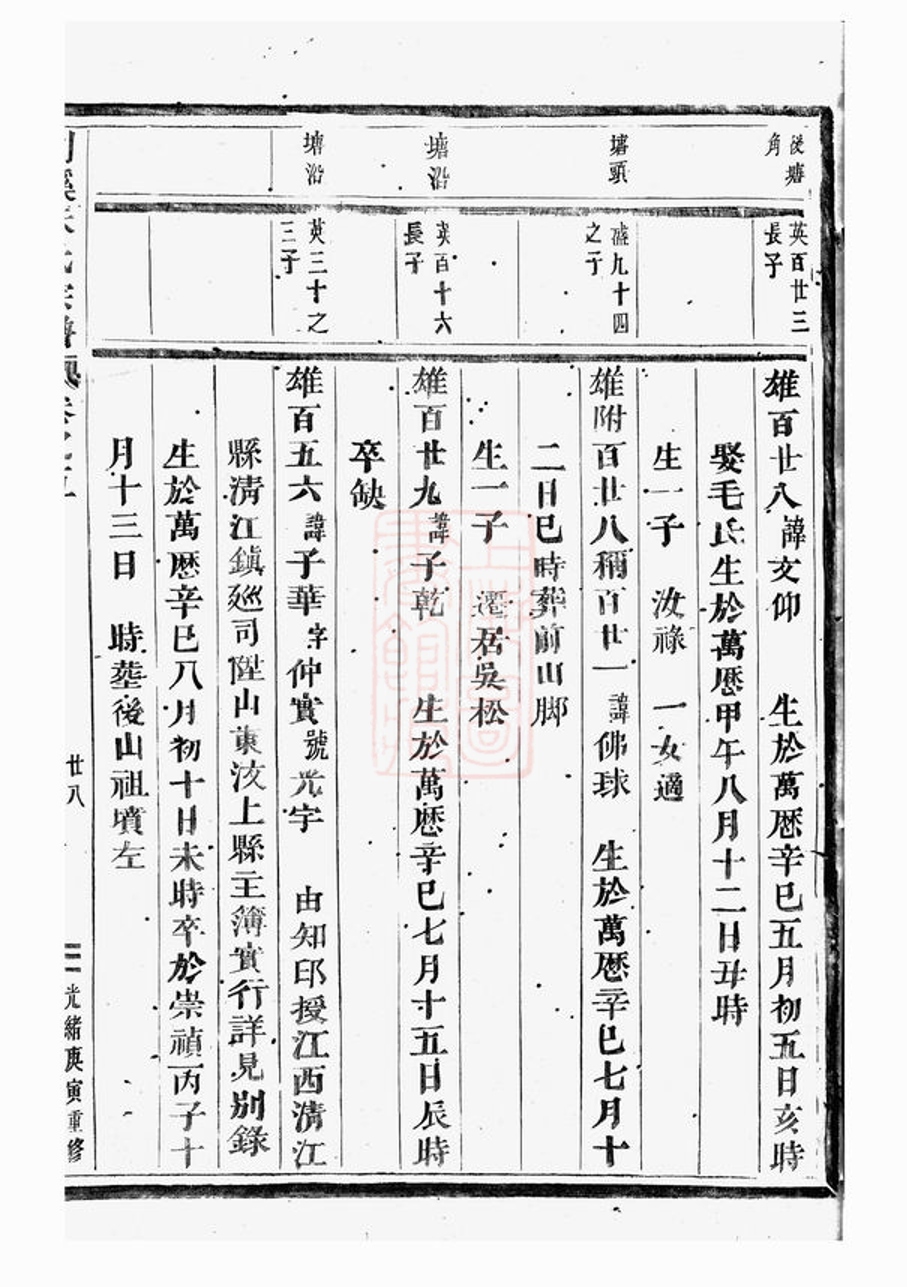 後塘
角
塘頭
塘沿
塘沿
英百廿三
長子
盛九十四
之子
英百十六
長子
英三十之
三子
雄百廿八諱文仰　生於萬厯辛巳五月初五日亥時
娶毛氏生於萬厯甲午八月十二日丑時
生一子　汝祿　一女適
雄附百廿八稱百廿一諱佛球　生於萬厯辛巳七月十
二日巳時葬前山脚
生一子　遷居吳松
雄百廿九諱子乾　生於萬厯辛巳七月十五日辰時
卒缺
雄百五六諱子華字仲實號光宇　由知印授江西清江
縣清江鎮廵司陞山東汶上縣主簿實行詳見別錄
生於萬厯辛巳八月初十日未時卒於崇禎丙子十
月十三日　時塟後山祖墳左
廿八
光緒庚寅重修